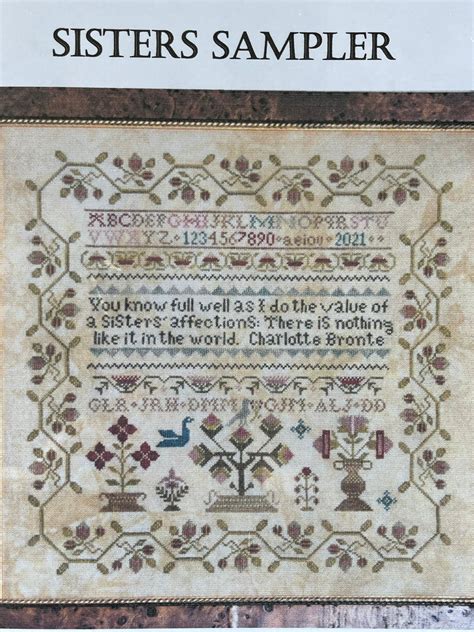 SISTERS SAMPLER
ABCDEFGHIJKLMNOPQRSTU
VWXYZ • 1234567890 • aeiou • 2021 •
You know full well as I do the value of
a sisters' affections: There is nothing
like it in the world. Charlotte Bronte
GLR•JRH•DMM GJM•ALJ•DD